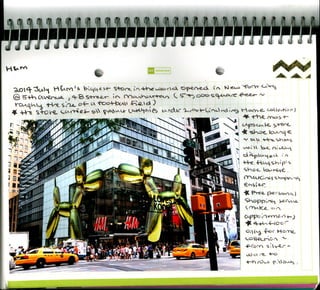 H&M
2014 July H&M's biggest store in the world opened in New York City
@ 5th Avenue, 48 street in Manhattan (57,000 square feet ~
roughly the size of a football field)
* the store carries all product concepts under 1 roof (including Home collection)
* the most
upscale store
* shoe lounge
~ all the shoes
will be nicely
displayed in
the flagship's
shoe lounge,
making shopping
easier
* Free personal
shopping service
(make an
appointment)
* 4th floor
only for Home
collection ~
from silver-
ware to
throw pillows.
H&M
H&M